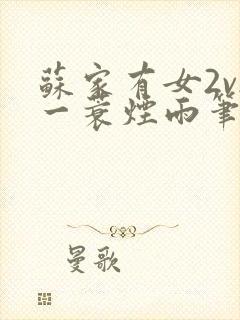 蘇家有女2v
一蓑煙雨筆
曼歌